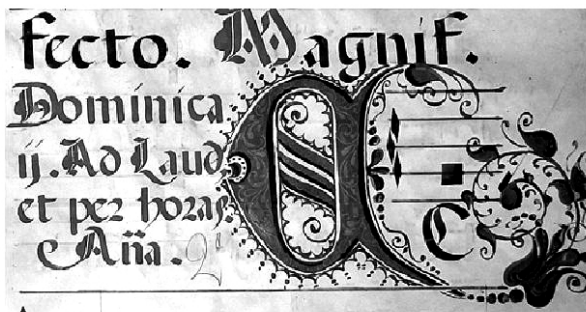 fecto. Magnif.
Dominica
ij. Ad Laud.
et per horas.
Aña. 2ª
E C